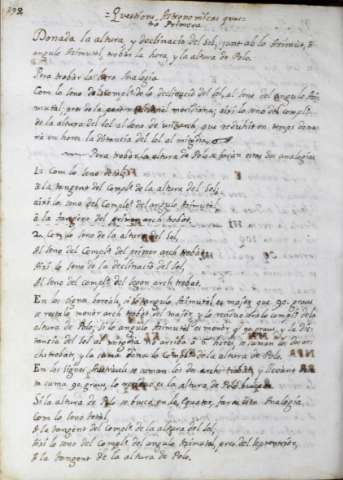 192
Questions Astronomicas quar-
ta Primera
Donada la altura, y declinacio del Sol, junt ab lo Azimut, ô
angulo Azimutal, trobar la hora, y la altura de Polo.
Pera trobar la hora Analogia
Com lo Seno del Compl.t de la declinacio del Sol, al Seno del angulo Azi-
mutal pres de la part meridiana; aixi lo Seno del compl.t
de la altura del Sol al Seno de
ra en hores la distancia del Sol al mitgdia
Pera trobar la altura de Polo se forian estas dos analogias
1.a Com lo Seno total
A la tangent del Compl.t de la altura del Sol,
aixi lo Seno del Compl.t del angulo Azimutal
a la tangent del primer arch trobat.
2.a Com lo Seno de la altura del Sol,
Al Seno del Compl.t del primer arch trobat,
Aixi lo Seno de la declinacio del Sol,
Al Seno del compl.t del segon arch trobat.
En los signes boreals, si lo angulo Azimutal es major que 90. graus
se resta lo menor arch trobat del major y lo residuo dona lo compl.t de la
altura de Polo; Si lo angulo Azimutal es menor de 90 graus, y la dis-
tancia del Sol al mitgdia no arriba a 6. hores, se suman los dos ar-
chs trobats, y la suma dona lo Compl.t de la altura de Polo.
En los signes Australs se suman los dos archs trobats, y
la suma 90. graus, lo es la altura de Polo
Si la altura de Polo se busca en la Equator, far es esta Analogia.
Com lo Seno total,
A la tangent del compl.t de la altura del Sol,
Aixi lo Seno del Compl.t del angulo Azimutal, pres del Septentrion,
A la tangent de la altura de Polo.